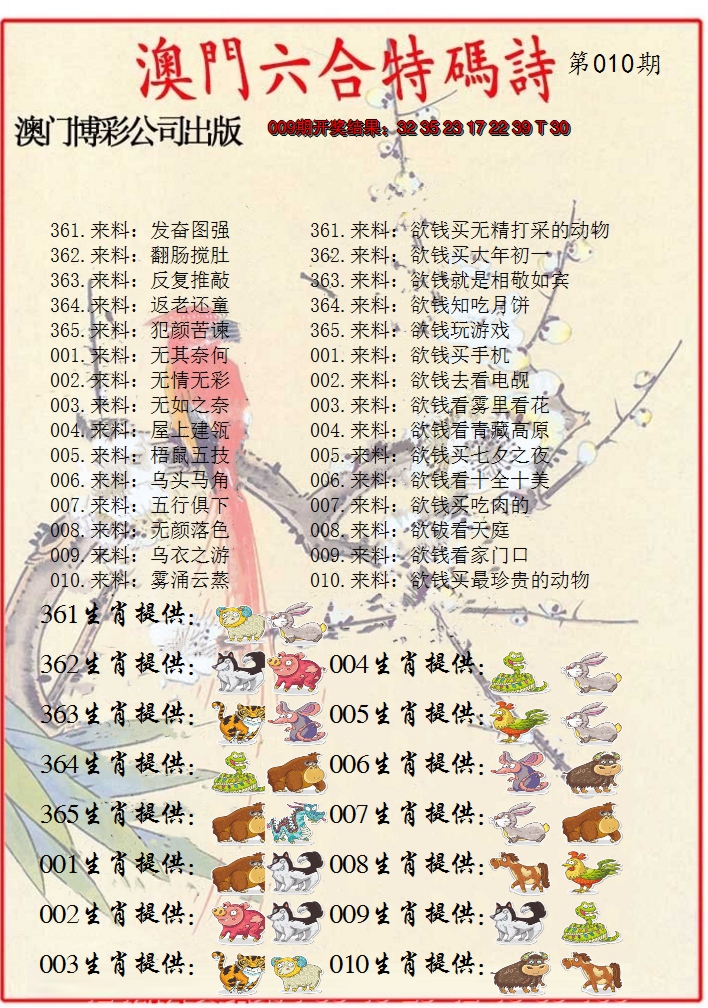 澳門六合特碼詩 第010期
澳门博彩公司出版 009期开奖结果：32 35 23 17 22 39 T 30
361.来料：发奋图强 361.来料：欲钱买无精打采的动物
362.来料：翻肠搅肚 362.来料：欲钱买大年初一
363.来料：反复推敲 363.来料：欲钱就是相敬如宾
364.来料：返老还童 364.来料：欲钱知吃月饼
365.来料：犯颜苦谏 365.来料：欲钱玩游戏
001.来料：无其奈何 001.来料：欲钱买手机
002.来料：无情无彩 002.来料：欲钱去看电觇
003.来料：无如之奈 003.来料：欲钱看雾里看花
004.来料：屋上建瓴 004.来料：欲钱看青藏高原
005.来料：梧鼠五技 005.来料：欲钱买七夕之夜
006.来料：乌头马角 006.来料：欲钱看十全十美
007.来料：五行俱下 007.来料：欲钱买吃肉的
008.来料：无颜落色 008.来料：欲钹看天庭
009.来料：乌衣之游 009.来料：欲钱看家门口
010.来料：雾涌云蒸 010.来料：欲钱买最珍贵的动物
361生肖提供：
362生肖提供： 004生肖提供：
363生肖提供： 005生肖提供：
364生肖提供： 006生肖提供：
365生肖提供： 007生肖提供：
001生肖提供： 008生肖提供：
002生肖提供： 009生肖提供：
003生肖提供： 010生肖提供：